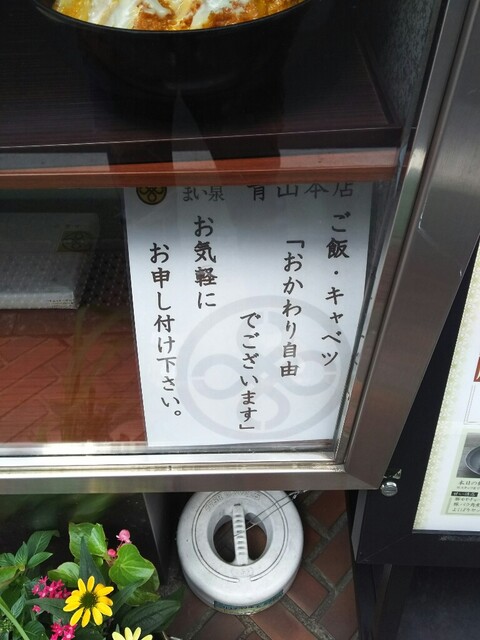 まい泉 青山本店
ご飯・キャベツ
「おかわり自由
でございます」
お気軽に
お申し付け下さい。